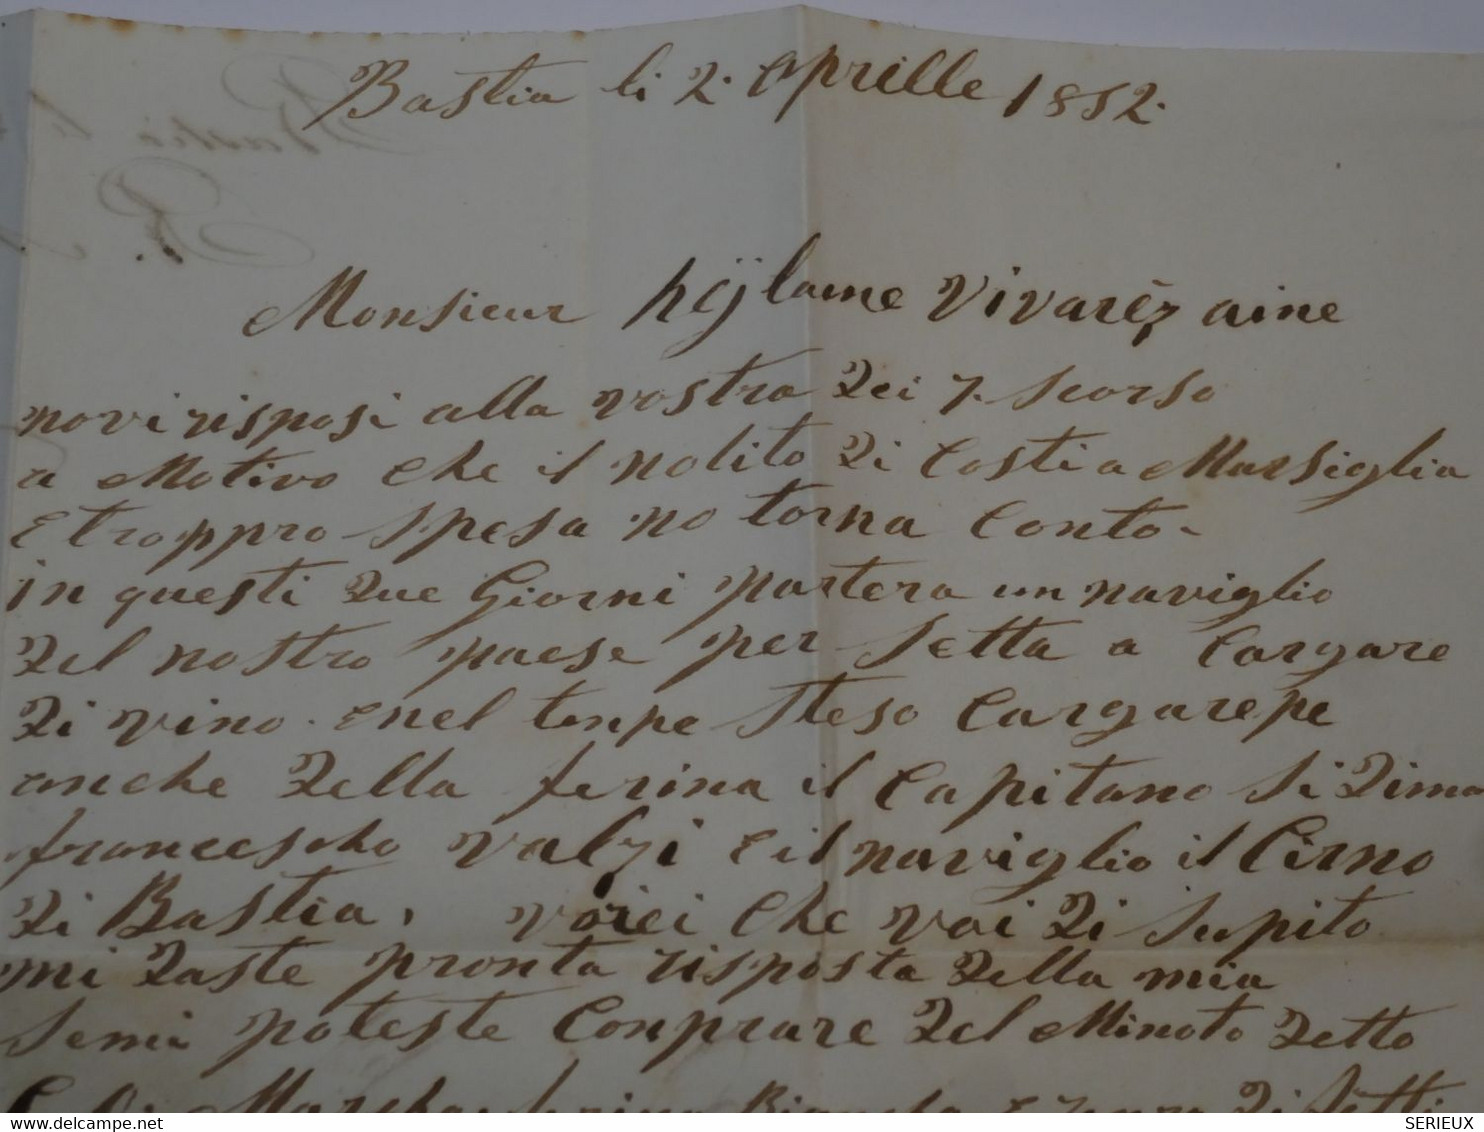 Bastia li 2. Aprille 1852.
Monsieur hÿlaire Vivarèz aine
no vi risposi alla vostra Dei 7. scorso
a Motivo che il nolito Di Costi a Marsiglia
E troppro spesa no torna Conto -
in questi Due Giorni partera un naviglio
Del nostro paese per Setta a Cargare
Di vino. e nel tenpo Steso Cargarepe
anche Della ferina il Capitano Si Dima
francescho Valzi e il naviglio il Cirno
Di Bastia, vorei che voi Di supito
mi Daste pronta risposta Della mia
Se mi poteste Conprare Del Minoto Detto
SERIEUX